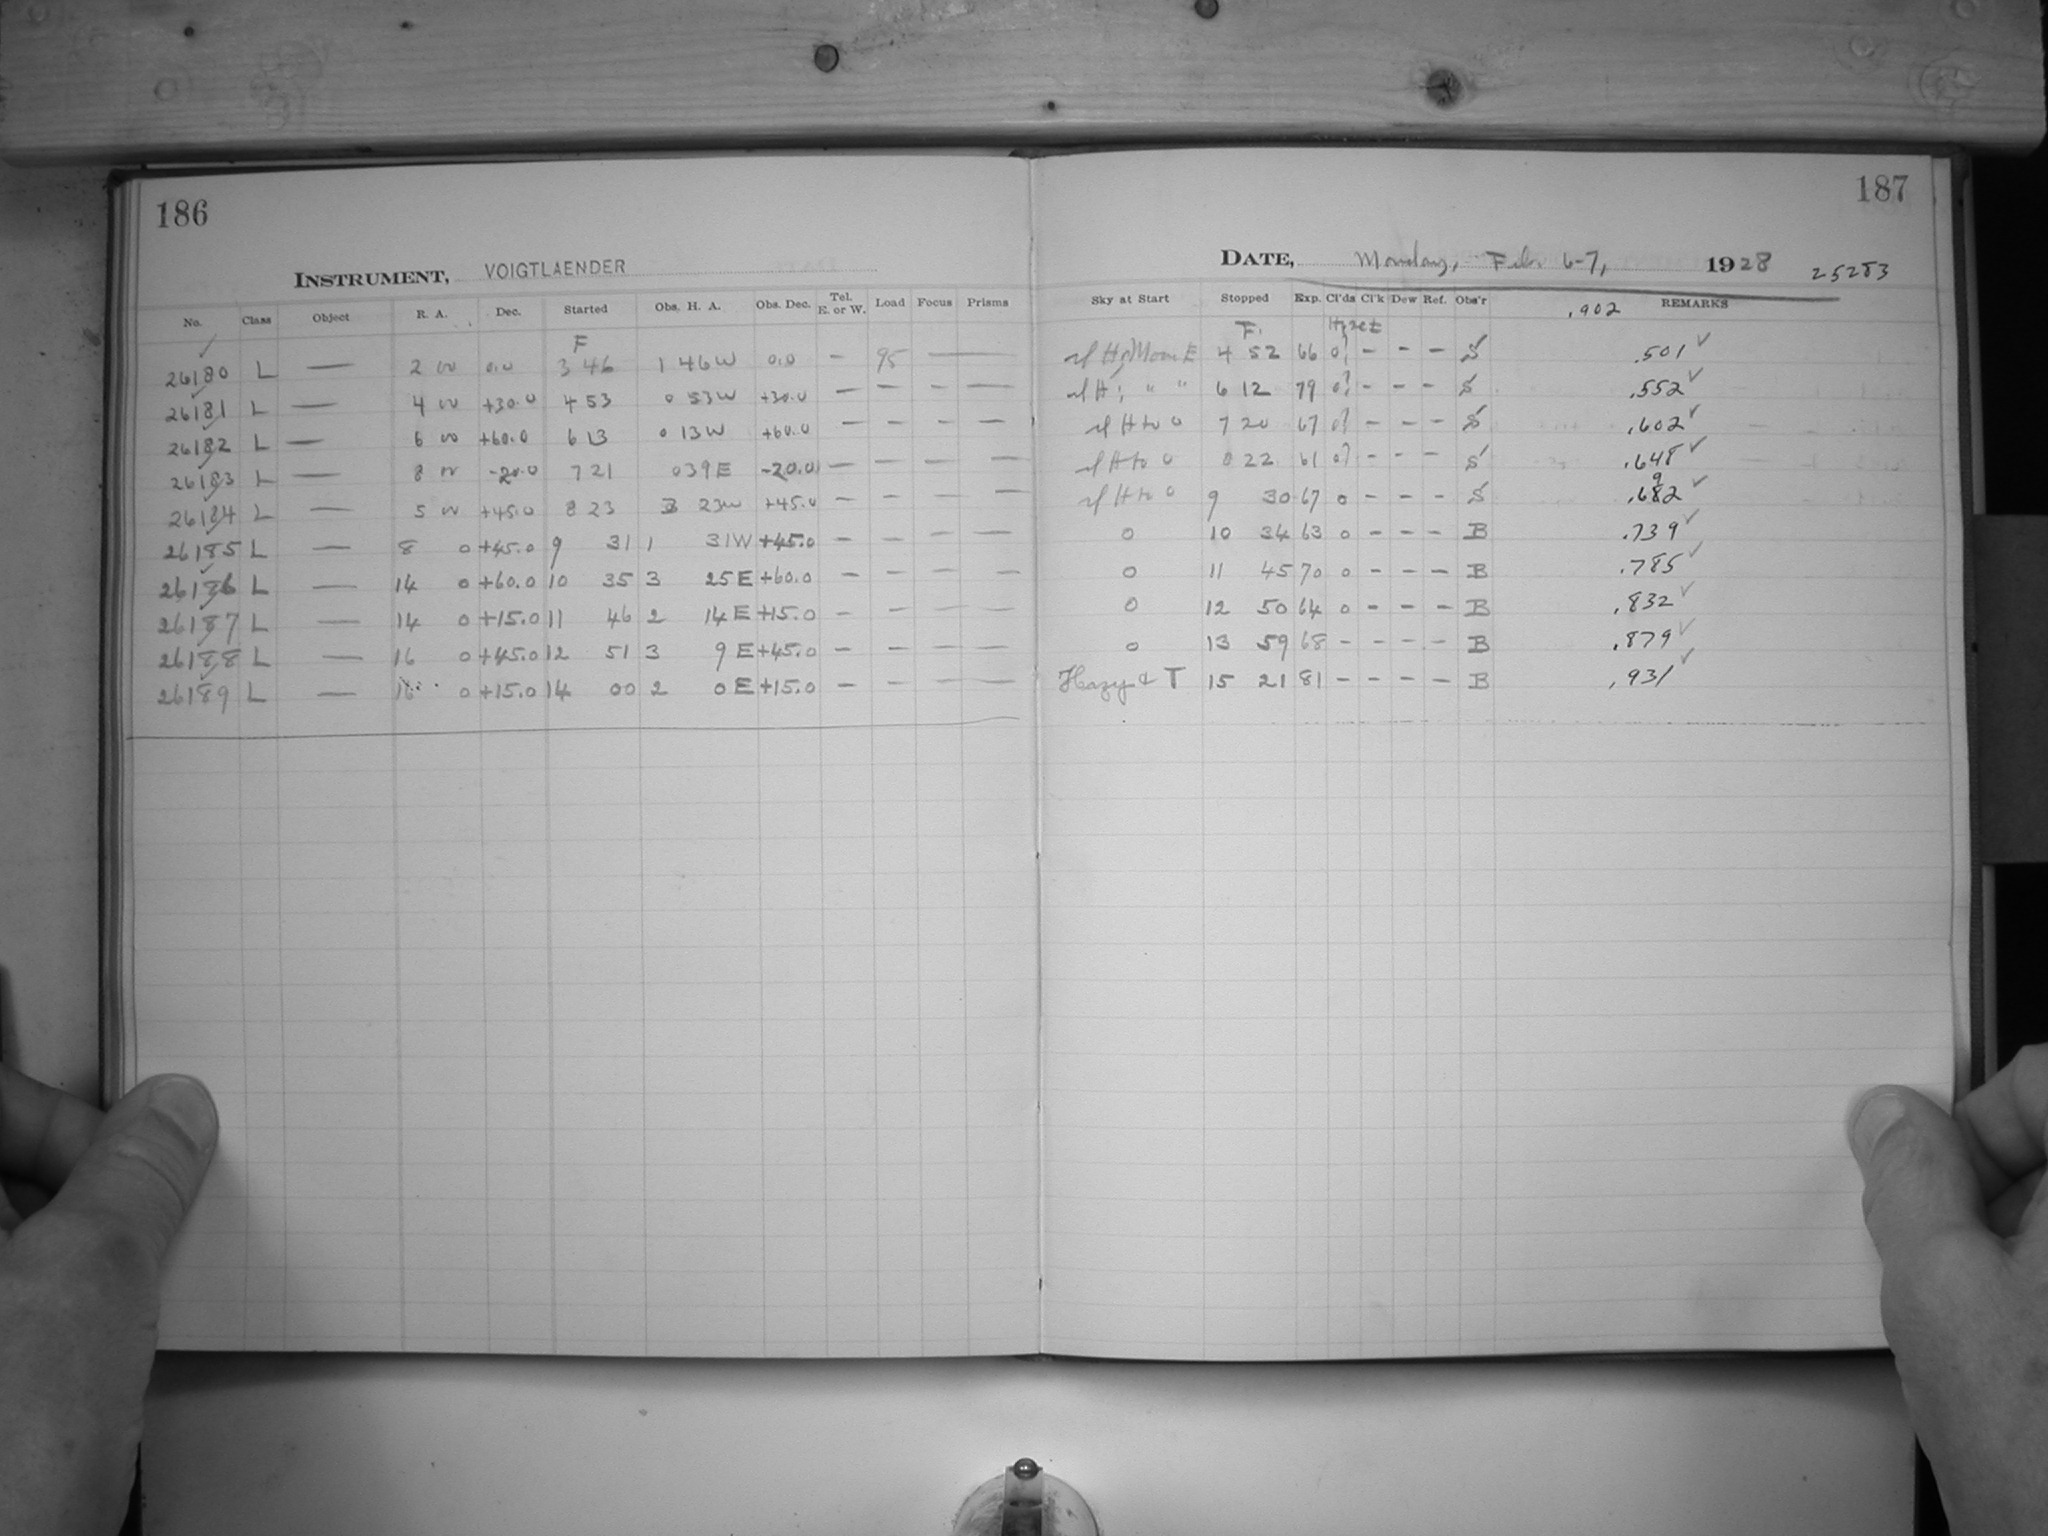 186
INSTRUMENT, VOIGTLAENDER
No. Class Object R. A. Dec. Started Obs. H. A. Obs. Dec. Tel. E. or W. Load Focus Prisms
F
26180 L — 2 00 0.0 3 46 1 46W 0.0 — 95 ——
26181 L — 4 00 +30.0 4 53 0 53W +30.0 — — — —
26182 L — 6 00 +60.0 6 13 0 13W +60.0 — — — —
26183 L — 8 00 -20.0 7 21 0 39E -20.0 — — — —
26184 L — 5 00 +45.0 8 23 3 23W +45.0 — — — —
26185 L — 8 0 +45.0 9 31 1 31W +45.0 — — — —
26186 L — 14 0 +60.0 10 35 3 25E +60.0 — — — —
26187 L — 14 0 +15.0 11 46 2 14E +15.0 — — — —
26188 L — 16 0 +45.0 12 51 3 9E +45.0 — — — —
26189 L — 16 0 +15.0 14 00 2 0E +15.0 — — — —
187
DATE, Monday, Feb. 6-7, 1928 25283
Sky at Start Stopped Exp. Cl'ds Cl'k Dew Ref. Obs'r .902 REMARKS
F.
Moon E 4 52 66 0? – – – S .501 ✓
" " 6 12 79 0? – – – S .552 ✓
H to 0 7 20 67 0? – – – S .602 ✓
H to 0 8 22 61 0? – – – S .648 ✓
9
H to 0 9 30 67 0 – – – S .682 ✓
0 10 34 63 0 – – – B .739 ✓
0 11 45 70 0 – – – B .785 ✓
0 12 50 64 0 – – – B .832 ✓
0 13 59 68 – – – – B .879 ✓
Hazy & T 15 21 81 – – – – B .931 ✓